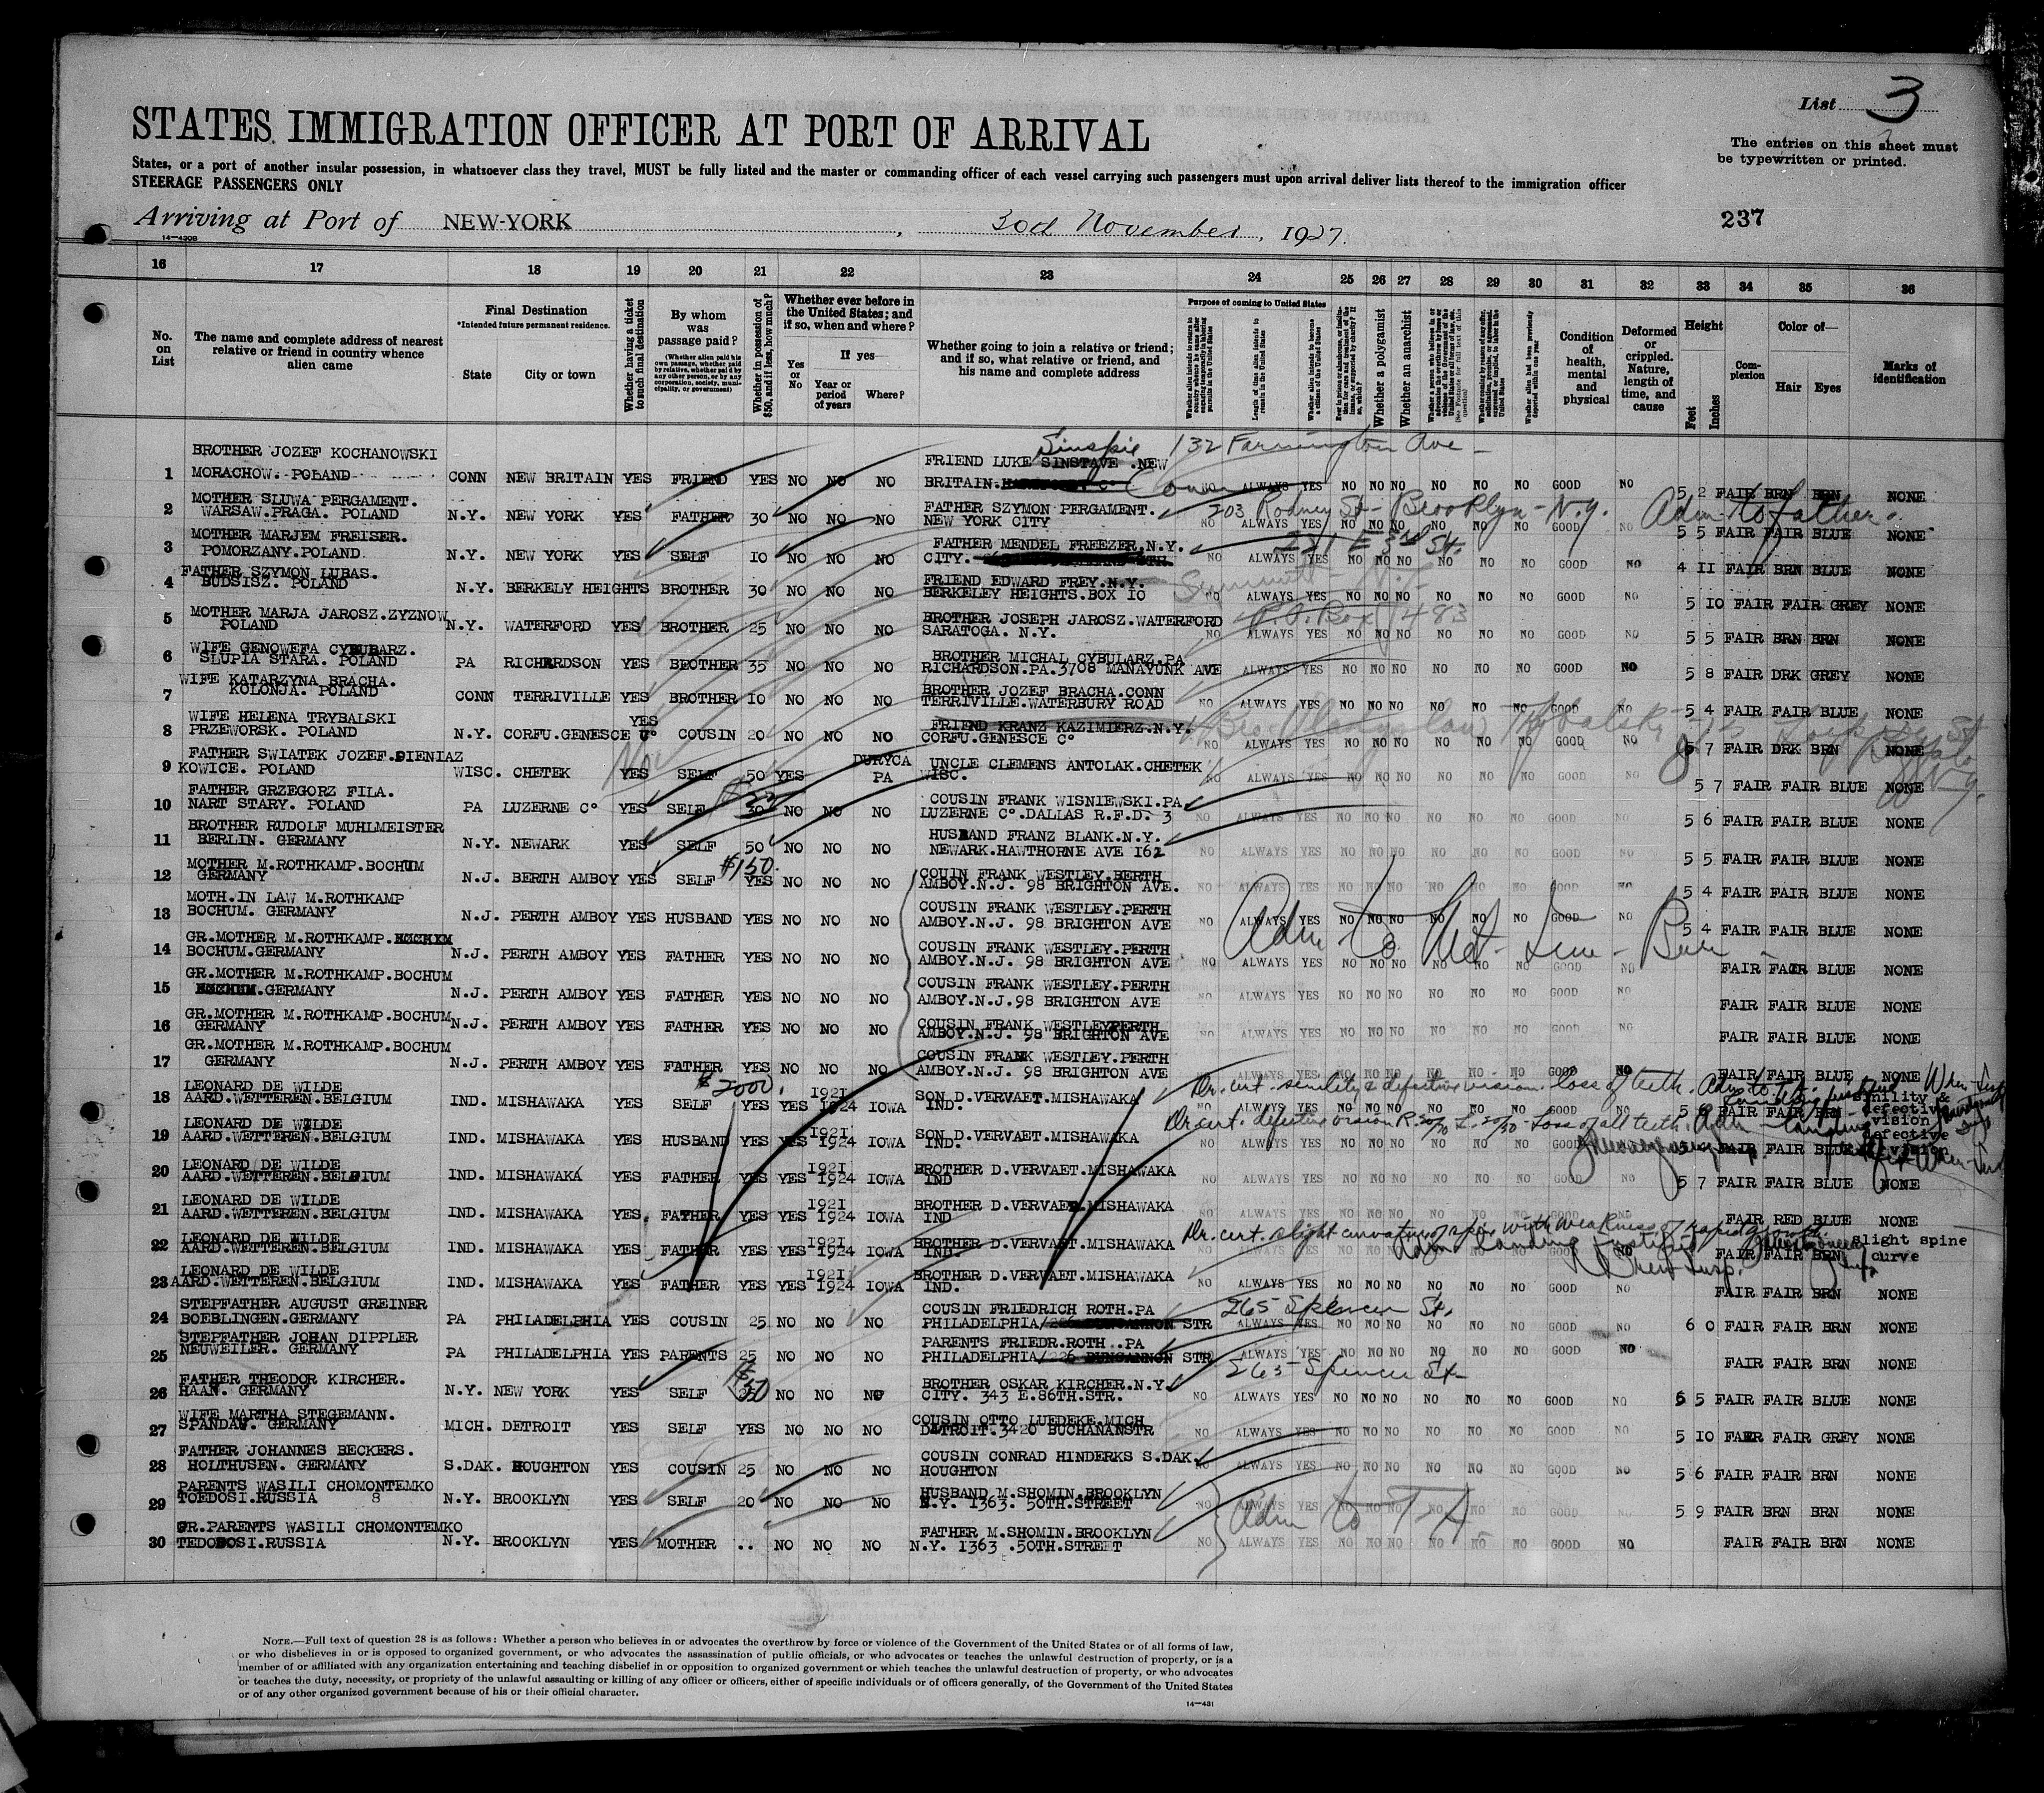 List 3
STATES IMMIGRATION OFFICER AT PORT OF ARRIVAL
The entries on this sheet must
be typewritten or printed.
States, or a port of another insular possession, in whatsoever class they travel, MUST be fully listed and the master or commanding officer of each vessel carrying such passengers must upon arrival deliver lists thereof to the immigration officer
STEERAGE PASSENGERS ONLY
Arriving at Port of NEW-YORK , 30th November, 1927.
237
14-4308
16 17 18 19 20 21 22 23 24 25 26 27 28 29 30 31 32 33 34 35 36
No. on List
The name and complete address of nearest relative or friend in country whence alien came
Final Destination
*Intended future permanent residence.
State City or town
Whether having a ticket to such final destination
By whom was passage paid?
(Whether alien paid his own passage, whether paid by relative, whether paid by any other person, or by any corporation, society, municipality, or government)
Whether in possession of $50, and if less, how much?
Whether ever before in the United States; and if so, when and where?
Yes or No
If yes—
Year or period of years
Where?
Whether going to join a relative or friend; and if so, what relative or friend, and his name and complete address
Purpose of coming to United States
Length of time alien intends to remain in the United States
Whether alien intends to become a citizen of the United States
Whether a polygamist
Whether an anarchist
Whether alien had been previously deported within one year
Condition of health, mental and physical
Deformed or crippled. Nature, length of time, and cause
Height
Feet Inches
Complexion
Color of—
Hair Eyes
Marks of identification
Sinspie 132 Farmington Ave
BROTHER JOZEF KOCHANOWSKI FRIEND LUKE SINSTAVE .NEW
1 MORACHOW. POLAND CONN NEW BRITAIN YES FRIEND YES NO NO NO BRITAIN. Conn NO ALWAYS YES NO NO NO NO NO NO GOOD NO 5 2 FAIR BRN BRN NONE
MOTHER SLUWA PERGAMENT. FATHER SZYMON PERGAMENT. 203 Rodney St - Brooklyn - N.Y. Adm to father.
2 WARSAW.PRAGA. POLAND N.Y. NEW YORK YES FATHER 30 NO NO NO NEW YORK CITY NO ALWAYS YES NO NO NO NO NO NO GOOD NO 5 5 FAIR FAIR BLUE NONE
MOTHER MARJEM FREISER. FATHER MENDEL FREEZER.N.Y. 221 E 3rd St.
3 POMORZANY.POLAND N.Y. NEW YORK YES SELF 10 NO NO NO CITY. STR NO ALWAYS YES NO NO NO NO NO NO GOOD NO 4 11 FAIR BRN BLUE NONE
FATHER SZYMON LUBAS. FRIEND EDWARD FREY.N.Y. Summit - N.J.
4 BUDSISZ. POLAND N.Y. BERKELY HEIGHTS BROTHER 30 NO NO NO BERKELEY HEIGHTS.BOX 10 NO ALWAYS YES NO NO NO NO NO NO GOOD NO 5 10 FAIR FAIR GREY NONE
MOTHER MARJA JAROSZ.ZYZNOW BROTHER JOSEPH JAROSZ.WATERFORD P.O. Box 483
5 POLAND N.Y. WATERFORD YES BROTHER 25 NO NO NO SARATOGA. N.Y. NO ALWAYS YES NO NO NO NO NO NO GOOD NO 5 5 FAIR BRN BRN NONE
WIFE GENOWEFA CYBULARZ. BROTHER MICHAL CYBULARZ.PA
6 SLUPIA STARA. POLAND PA RICHARDSON YES BROTHER 35 NO NO NO RICHARDSON.PA.3708 MANAYUNK AVE ALWAYS YES NO NO NO NO NO NO GOOD NO 5 8 FAIR DRK GREY NONE
WIFE KATARZYNA BRACHA. BROTHER JOZEF BRACHA.CONN
7 KOLONJA. POLAND CONN TERRIVILLE YES BROTHER 10 NO NO NO TERRIVILLE.WATERBURY ROAD NO ALWAYS YES NO NO NO NO NO NO GOOD NO 5 4 FAIR FAIR BLUE NONE
WIFE HELENA TRYBALSKI YES FRIEND KRANZ KAZIMIERZ.N.Y. Trybalski
8 PRZEWORSK. POLAND N.Y. CORFU.GENESCE C° COUSIN 20 NO NO NO CORFU.GENESCE C° NO ALWAYS YES NO NO NO NO NO NO GOOD NO 5 7 FAIR DRK BRN NONE Buffalo N.Y.
FATHER SWIATEK JOZEF.PIENIAZ DURYCA UNCLE CLEMENS ANTOLAK.CHETEK
9 KOWICE. POLAND WISC. CHETEK YES SELF 50 YES PA WISC. NO ALWAYS YES NO NO NO NO NO NO GOOD NO 5 7 FAIR FAIR BLUE NONE
FATHER GRZEGORZ FILA. COUSIN FRANK WISNIEWSKI.PA
10 NART STARY. POLAND PA LUZERNE C° YES SELF 30 NO NO NO LUZERNE C°.DALLAS R.F.D. 3 NO ALWAYS YES NO NO NO NO NO NO GOOD NO 5 6 FAIR FAIR BLUE NONE
BROTHER RUDOLF MUHLMEISTER HUSBAND FRANZ BLANK.N.Y.
11 BERLIN. GERMANY N.Y. NEWARK YES SELF 50 NO NO NO NEWARK.HAWTHORNE AVE 162 NO ALWAYS YES NO NO NO NO NO NO GOOD NO 5 5 FAIR FAIR BLUE NONE
MOTHER M.ROTHKAMP.BOCHUM $150. COUIN FRANK WESTLEY.BERTH
12 GERMANY N.J. BERTH AMBOY YES SELF YES NO NO NO AMBOY.N.J. 98 BRIGHTON AVE. NO ALWAYS YES NO NO NO NO NO NO GOOD NO 5 4 FAIR FAIR BLUE NONE
MOTH.IN LAW M.ROTHKAMP COUSIN FRANK WESTLEY.PERTH
13 BOCHUM. GERMANY N.J. PERTH AMBOY YES HUSBAND YES NO NO NO AMBOY.N.J. 98 BRIGHTON AVE NO ALWAYS YES NO NO NO NO NO NO GOOD NO 5 4 FAIR FAIR BLUE NONE
Adm to
GR.MOTHER M.ROTHKAMP. COUSIN FRANK WESTLEY.PERTH
14 BOCHUM.GERMANY N.J. PERTH AMBOY YES FATHER YES NO NO NO AMBOY.N.J. 98 BRIGHTON AVE NO ALWAYS YES NO NO NO NO NO NO GOOD NO FAIR FAIR BLUE NONE
GR.MOTHER M.ROTHKAMP.BOCHUM COUSIN FRANK WESTLEY.PERTH
15 GERMANY N.J. PERTH AMBOY YES FATHER YES NO NO NO AMBOY.N.J.98 BRIGHTON AVE NO ALWAYS YES NO NO NO NO NO NO GOOD NO FAIR FAIR BLUE NONE
GR.MOTHER M.ROTHKAMP.BOCHUM COUSIN FRANK WESTLEY PERTH
16 GERMANY N.J. PERTH AMBOY YES FATHER YES NO NO NO AMBOY.N.J. 98 BRIGHTON AVE NO ALWAYS YES NO NO NO NO NO NO GOOD NO FAIR FAIR BLUE NONE
GR.MOTHER M.ROTHKAMP.BOCHUM COUSIN FRANK WESTLEY.PERTH
17 GERMANY N.J. PERTH AMBOY YES FATHER YES NO NO NO AMBOY.N.J. 98 BRIGHTON AVE NO ALWAYS YES NO NO NO NO NO NO GOOD NO FAIR FAIR BLUE NONE
$2000. Dr. cert. senility & defective vision. loss of teeth.
LEONARD DE WILDE 1921 SON D.VERVAET.MISHAWAKA
18 AARD.WETTEREN.BELGIUM IND. MISHAWAKA YES SELF YES YES 1924 IOWA IND. NO ALWAYS YES NO NO NO NO NO NO GOOD NO 5 6 FAIR FAIR BRN Senility & defective vision
Dr. cert. defective vision R. 20/70 L. 20/50 - Loss of all teeth.
LEONARD DE WILDE 1921 SON D.VERVAET.MISHAWAKA
19 AARD.WETTEREN.BELGIUM IND. MISHAWAKA YES HUSBAND YES YES 1924 IOWA IND. NO ALWAYS YES NO NO NO NO NO NO GOOD NO FAIR FAIR BLUE defective vision
LEONARD DE WILDE 1921 BROTHER D.VERVAET.MISHAWAKA
20 AARD.WETTEREN.BELGIUM IND. MISHAWAKA YES FATHER YES YES 1924 IOWA IND NO ALWAYS YES NO NO NO NO NO NO GOOD NO 5 7 FAIR FAIR BLUE NONE
LEONARD DE WILDE 1921 BROTHER D.VERVAET.MISHAWAKA
21 AARD.WETTEREN.BELGIUM IND. MISHAWAKA YES FATHER YES YES 1924 IOWA IND NO ALWAYS YES NO NO NO NO NO NO GOOD NO FAIR RED BLUE NONE
Dr. cert. slight curvature of spine with weakness of rapid growth.
LEONARD DE WILDE 1921 BROTHER D.VERVAET.MISHAWAKA
22 AARD.WETTEREN.BELGIUM IND. MISHAWAKA YES FATHER YES YES 1924 IOWA IND. NO FAIR FAIR BRN Slight spine curve
LEONARD DE WILDE 1921 BROTHER D.VERVAET.MISHAWAKA
23 AARD.WETTEREN.BELGIUM IND. MISHAWAKA YES FATHER YES YES 1924 IOWA IND. NO ALWAYS YES NO NO NO NO NO NO GOOD NO FAIR FAIR BRN NONE
STEPFATHER AUGUST GREINER COUSIN FRIEDRICH ROTH.PA 265 Spencer St.
24 BOEBLINGEN.GERMANY PA PHILADELPHIA YES COUSIN 25 NO NO NO PHILADELPHIA/226 DUNGANNON STR ALWAYS YES NO NO NO NO NO NO GOOD NO 6 0 FAIR FAIR BRN NONE
STEPFATHER JOHAN DIPPLER PARENTS FRIEDR.ROTH .PA
25 NEUWEILER. GERMANY PA PHILADELPHIA YES PARENTS 25 NO NO NO PHILADELPHIA/226 DUNGANNON STR ALWAYS YES NO NO NO NO NO NO GOOD NO FAIR FAIR BRN NONE
265 Spencer St
FATHER THEODOR KIRCHER. BROTHER OSKAR KIRCHER.N.Y.
26 HAAN. GERMANY N.Y. NEW YORK YES SELF 50 NO NO NO CITY. 343 E.86TH.STR. NO ALWAYS YES NO NO NO NO NO NO GOOD NO 5 5 FAIR FAIR BLUE NONE
WIFE MARTHA STEGEMANN. COUSIN OTTO LUEDEKE.MICH
27 SPANDAU. GERMANY MICH. DETROIT YES SELF YES NO NO NO DETROIT.3420 BUCHANANSTR NO ALWAYS YES NO NO NO NO NO NO GOOD NO 5 10 FAIR FAIR GREY NONE
FATHER JOHANNES BECKERS. COUSIN CONRAD HINDERKS S.DAK.
28 HOLTHUSEN. GERMANY S.DAK. HOUGHTON YES COUSIN 25 NO NO NO HOUGHTON NO ALWAYS YES NO NO NO NO NO NO GOOD NO 5 6 FAIR FAIR BRN NONE
PARENTS WASILI CHOMONTEMKO HUSBAND M.SHOMIN.BROOKLYN
29 TOEDOSI.RUSSIA 8 N.Y. BROOKLYN YES SELF 20 NO NO NO N.Y. 1363. 50TH.STREET NO ALWAYS YES NO NO NO NO NO NO GOOD NO 5 9 FAIR BRN BRN NONE
Adm to
GR.PARENTS WASILI CHOMONTEMKO FATHER M.SHOMIN.BROOKLYN
30 TEDODOSI.RUSSIA N.Y. BROOKLYN YES MOTHER .. NO NO NO N.Y. 1363 .50TH.STREET NO ALWAYS YES NO NO NO NO NO NO GOOD NO FAIR FAIR BRN NONE
NOTE.—Full text of question 28 is as follows: Whether a person who believes in or advocates the overthrow by force or violence of the Government of the United States or of all forms of law,
or who disbelieves in or is opposed to organized government, or who advocates the assassination of public officials, or who advocates or teaches the unlawful destruction of property, or is a
member of or affiliated with any organization entertaining and teaching disbelief in or opposition to organized government or which teaches the unlawful destruction of property, or who advocates
or teaches the duty, necessity, or propriety of the unlawful assaulting or killing of any officer or officers, either of specific individuals or of officers generally, of the Government of the United States
or of any other organized government because of his or their official character.
14-431